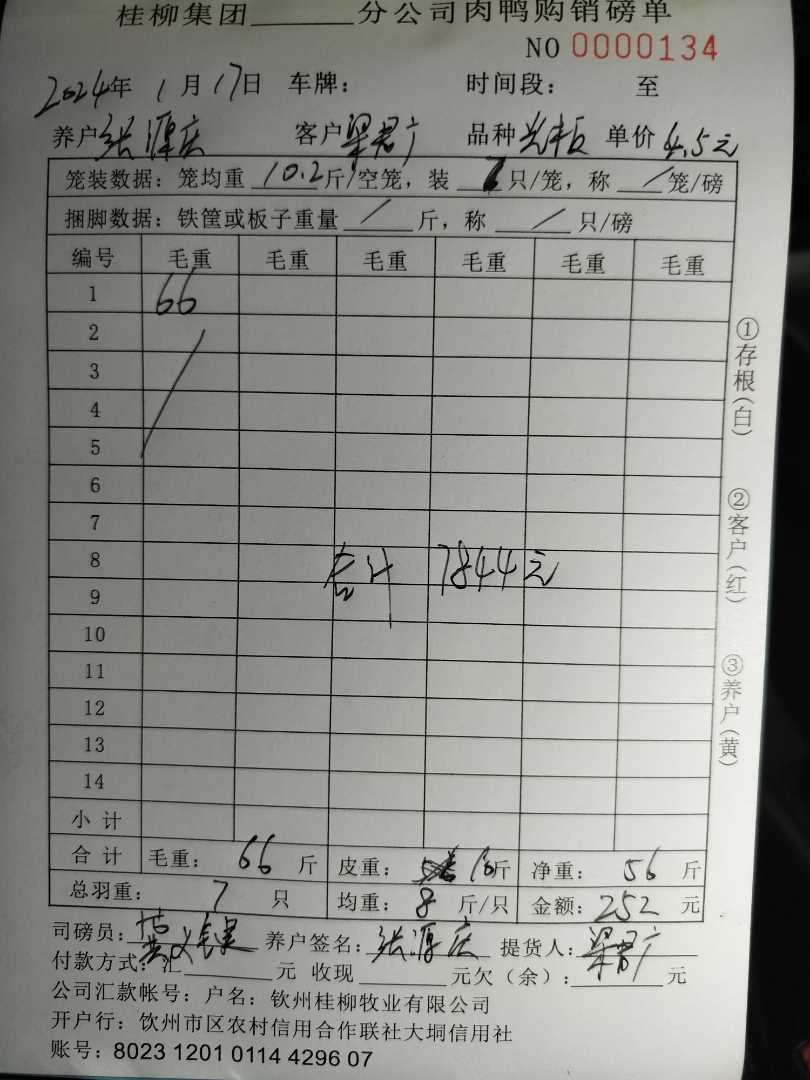 桂柳集团______分公司肉鸭购销磅单
NO 0000134
2024年 1月17日 车牌： 时间段： 至
养户张源庆 客户梁君广 品种 单价4.5元
笼装数据：笼均重 10.2斤/空笼，装 只/笼，称 / 笼/磅
捆脚数据：铁筐或板子重量 / 斤，称 / 只/磅
编号 毛重 毛重 毛重 毛重 毛重 毛重
1 66
2
3
4
5
6
7
8
合计 7844元
9
10
11
12
13
14
小计
合计 毛重：66斤 皮重：10斤 净重：56斤
总羽重：7只 均重：8斤/只 金额：252元
司磅员： 养户签名：张源庆 提货人：梁君广
付款方式：汇______元 收现______元欠（余）：______元
公司汇款帐号：户名：钦州桂柳牧业有限公司
开户行：钦州市区农村信用合作联社大垌信用社
账号：8023 1201 0114 4296 07
①存根（白）
②客户（红）
③养户（黄）